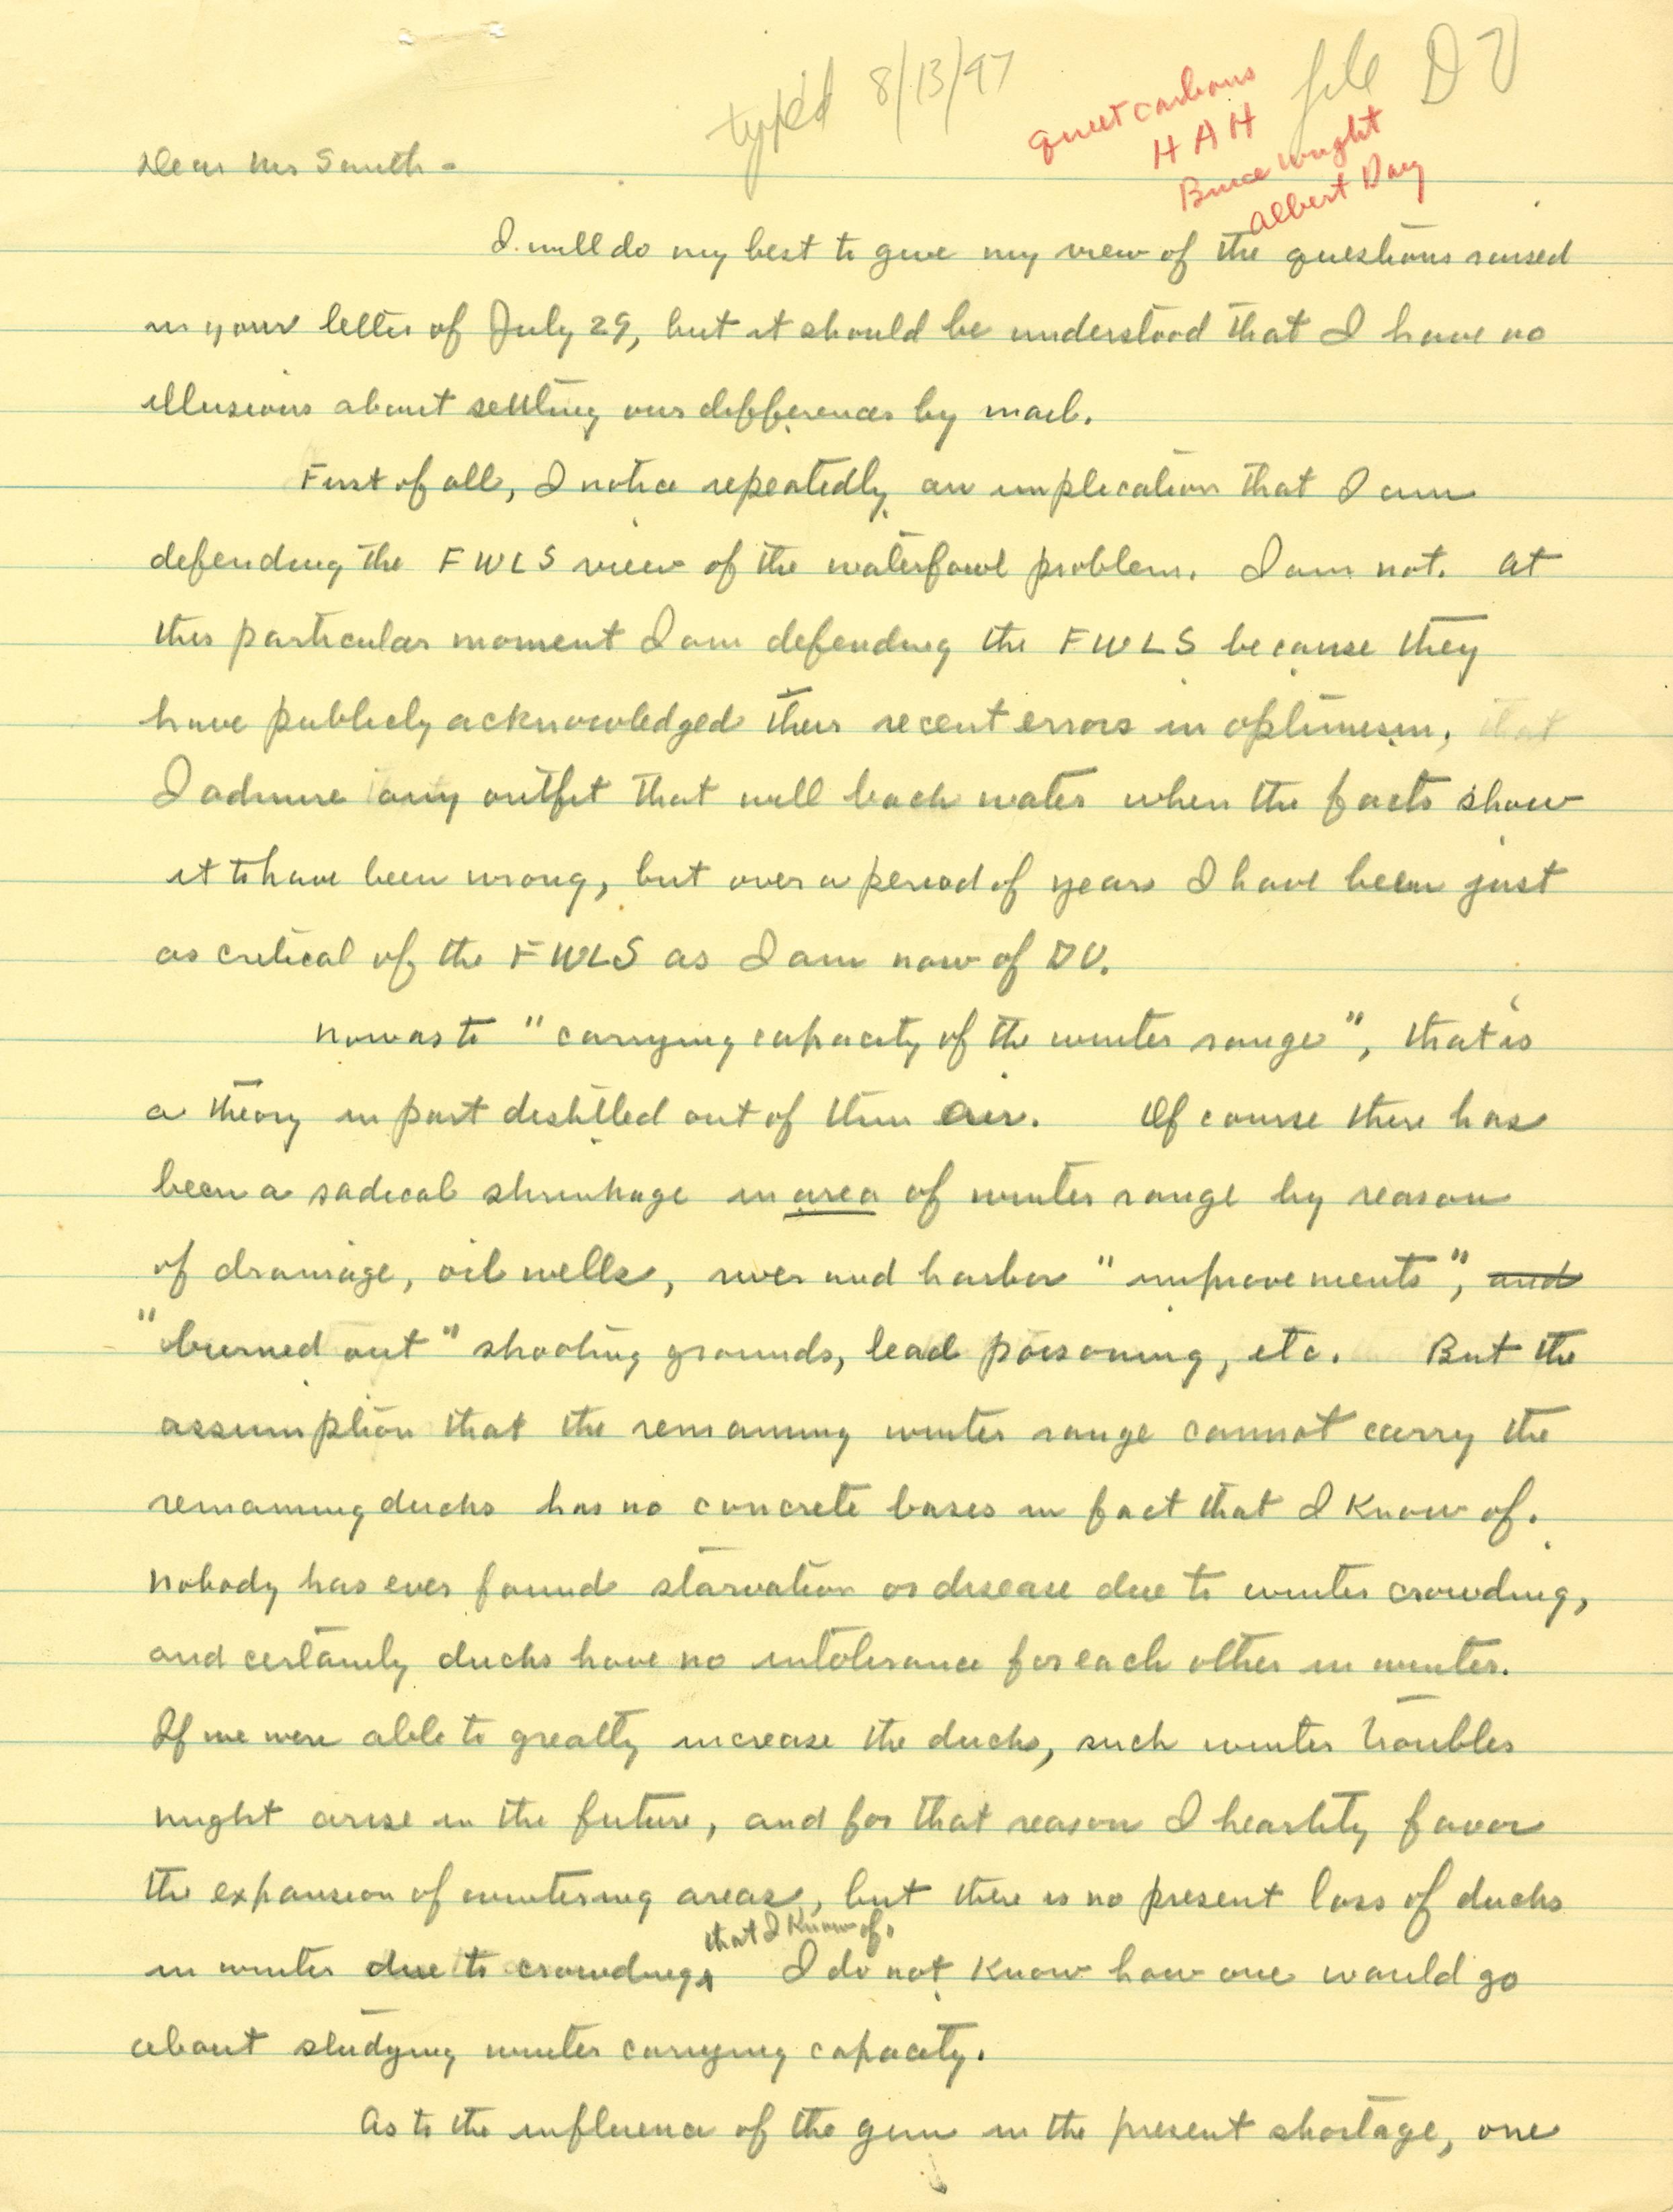 typed 8/13/47
file DU
quiet carbons
HAH
Bruce Wright
Albert Day
Dear Mr Smith -
I will do my best to give my view of the questions raised
in your letter of July 29, but it should be understood that I have no
illusions about settling our differences by mail.
First of all, I notice repeatedly an implication that I am
defending the FWLS view of the waterfowl problem. I am not. At
this particular moment I am defending the FWLS because they
have publicly acknowledged their recent errors in optimism, that
I admire any outfit that will back water when the facts show
it to have been wrong, but over a period of years I have been just
as critical of the FWLS as I am now of DU.
Now as to "carrying capacity of the winter range", that is
a theory in part distilled out of thin air. Of course there has
been a radical shrinkage in area of winter range by reason
of drainage, oil wells, river and harbor "improvements", and
"burned out" shooting grounds, lead poisoning, etc. But the
assumption that the remaining winter range cannot carry the
remaining ducks has no concrete basis in fact that I know of.
Nobody has ever found starvation or disease due to winter crowding,
and certainly ducks have no intolerance for each other in winter.
If we were able to greatly increase the ducks, such winter troubles
might arise in the future, and for that reason I heartily favor
the expansion of wintering areas, but there is no present loss of ducks
that I know of.
in winter due to crowding. I do not know how one would go
about studying winter carrying capacity.
As to the influence of the gun in the present shortage, one